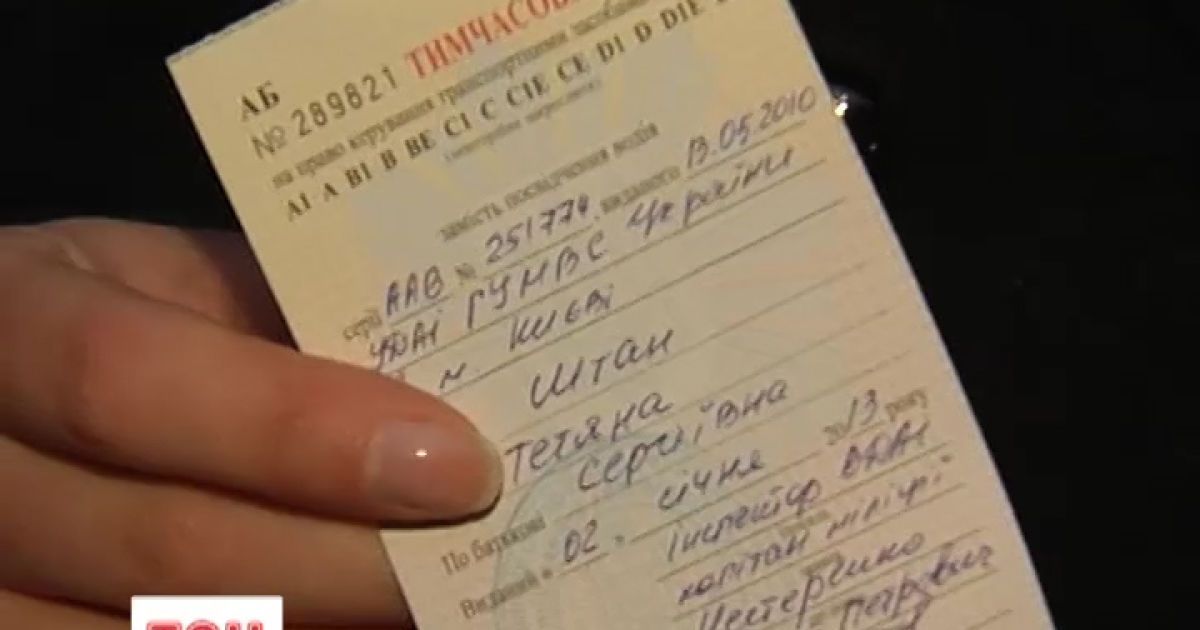 АБ
№ 289821 ТИМЧАСОВ
на право керування транспортними засобами
AI A BI B BE CI C CIE CE DI D DIE
(непотрібне закреслити)
замість посвідчення водія
серії ААВ № 251774, виданого 13.05.2010
УДАІ ГУМВС України
в м. Києві
Штан
Тетяна
По батькові Сергіївна
Виданий « 02 » січня 2013 року
інспектор ВДАІ
капітан міліції
Петрович
ТСН